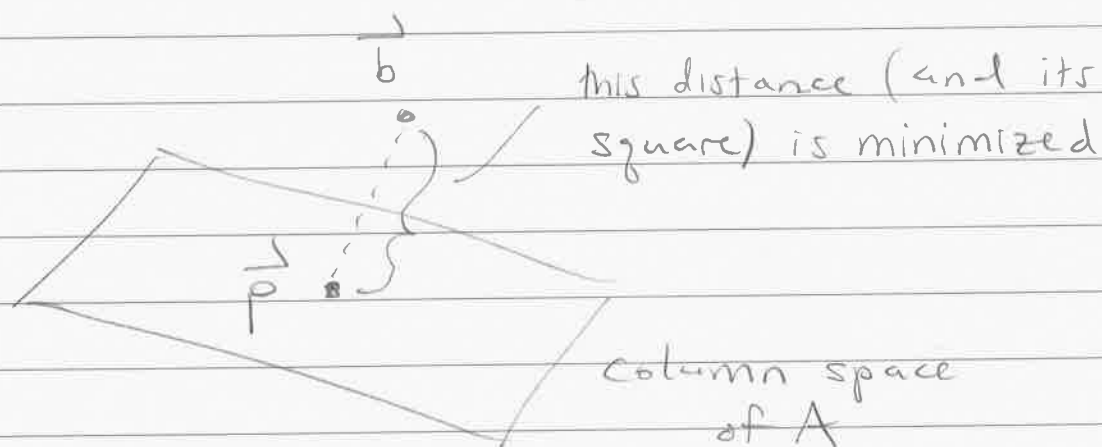 b⃗
this distance (and its
square) is minimized
p⃗
column space
of A